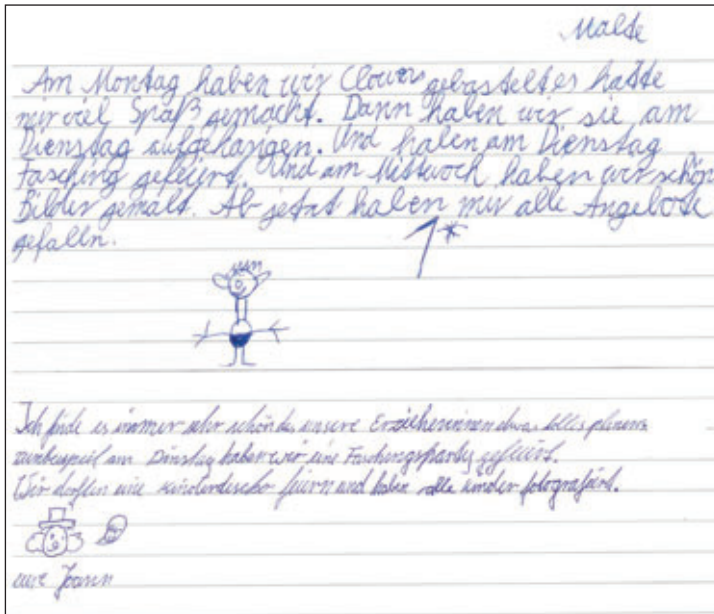 Malte
Am Montag haben wir Clowns gebastelt es hatte
mir viel Spaß gemacht. Dann haben wir sie am
Dienstag aufgehangen. Und haben am Dienstag
Fasching gefeiert. Und am Mittwoch haben wir schön
Bilder gemalt. Ab jetzt haben mir alle Angebote
gefalln.
Ich finde es immer sehr schön das unsere Erzieherinnen etwas tolles planen
zumbeispiel am Dinstag haben wir eine Faschingsparty gefeiert.
Wir durften eine kinderdiscko feiern und haben alle kinder fotografiert.
eure